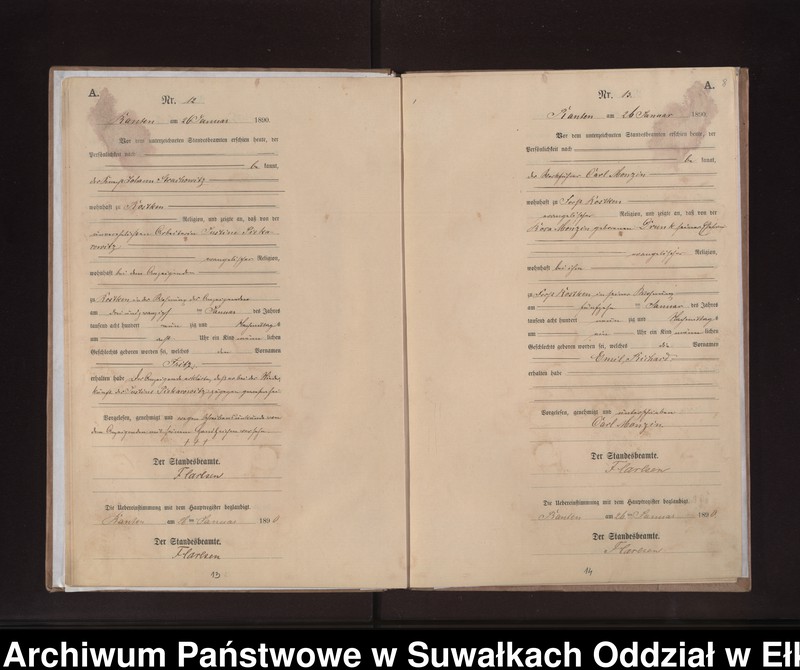 A.
Nr. 12
Kanten am 26 Januar 1890
Vor dem unterzeichneten Standesbeamten erschien heute, der
Persönlichkeit nach
be kannt,
der Johann
wohnhaft zu Kosken
Religion, und zeigte an, daß von der
unverehelichten Arbeiterin Justine
evangelischer Religion,
wohnhaft bei dem Anzeigenden
zu Kosken in der Wohnung des Anzeigenden
am drei und zwanzigsten Januar des Jahres
tausend acht hundert neun zig und Nachmittags
um acht Uhr ein Kind männlichen
Geschlechts geboren worden sei, welches den Vornamen
Fritz
erhalten habe Der Anzeigende erklärte, daß er bei der Niederkunft
der Justine zugegen gewesen sei
Vorgelesen, genehmigt und wegen Schreibensunkunde von
dem Anzeigenden mit seinem Handzeichen versehen
+++
Der Standesbeamte.
Die Uebereinstimmung mit dem Hauptregister beglaubigt.
Kanten am 26 ten Januar 1890
Der Standesbeamte.
13
A.
8
Nr. 13.
Kanten am 26 Januar 1890
Vor dem unterzeichneten Standesbeamten erschien heute, der
Persönlichkeit nach
be kannt,
der Carl Monzin
wohnhaft zu Forst Kosken
evangelischer Religion, und zeigte an, daß von der
Monzin geborenen seiner Ehefrau
evangelischer Religion,
wohnhaft bei ihm
zu Forst Kosken in seiner Wohnung
am fünfzehn ten Januar des Jahres
tausend acht hundert neun zig und Nachmittags
um ein Uhr ein Kind männlichen
Geschlechts geboren worden sei, welches die Vornamen
Emil Richard
erhalten habe
Vorgelesen, genehmigt und unterschrieben
Carl Monzin
Der Standesbeamte.
Die Uebereinstimmung mit dem Hauptregister beglaubigt.
Kanten am 26 ten Januar 1890
Der Standesbeamte.
14
Archiwum Państwowe w Suwałkach Oddział w Eł